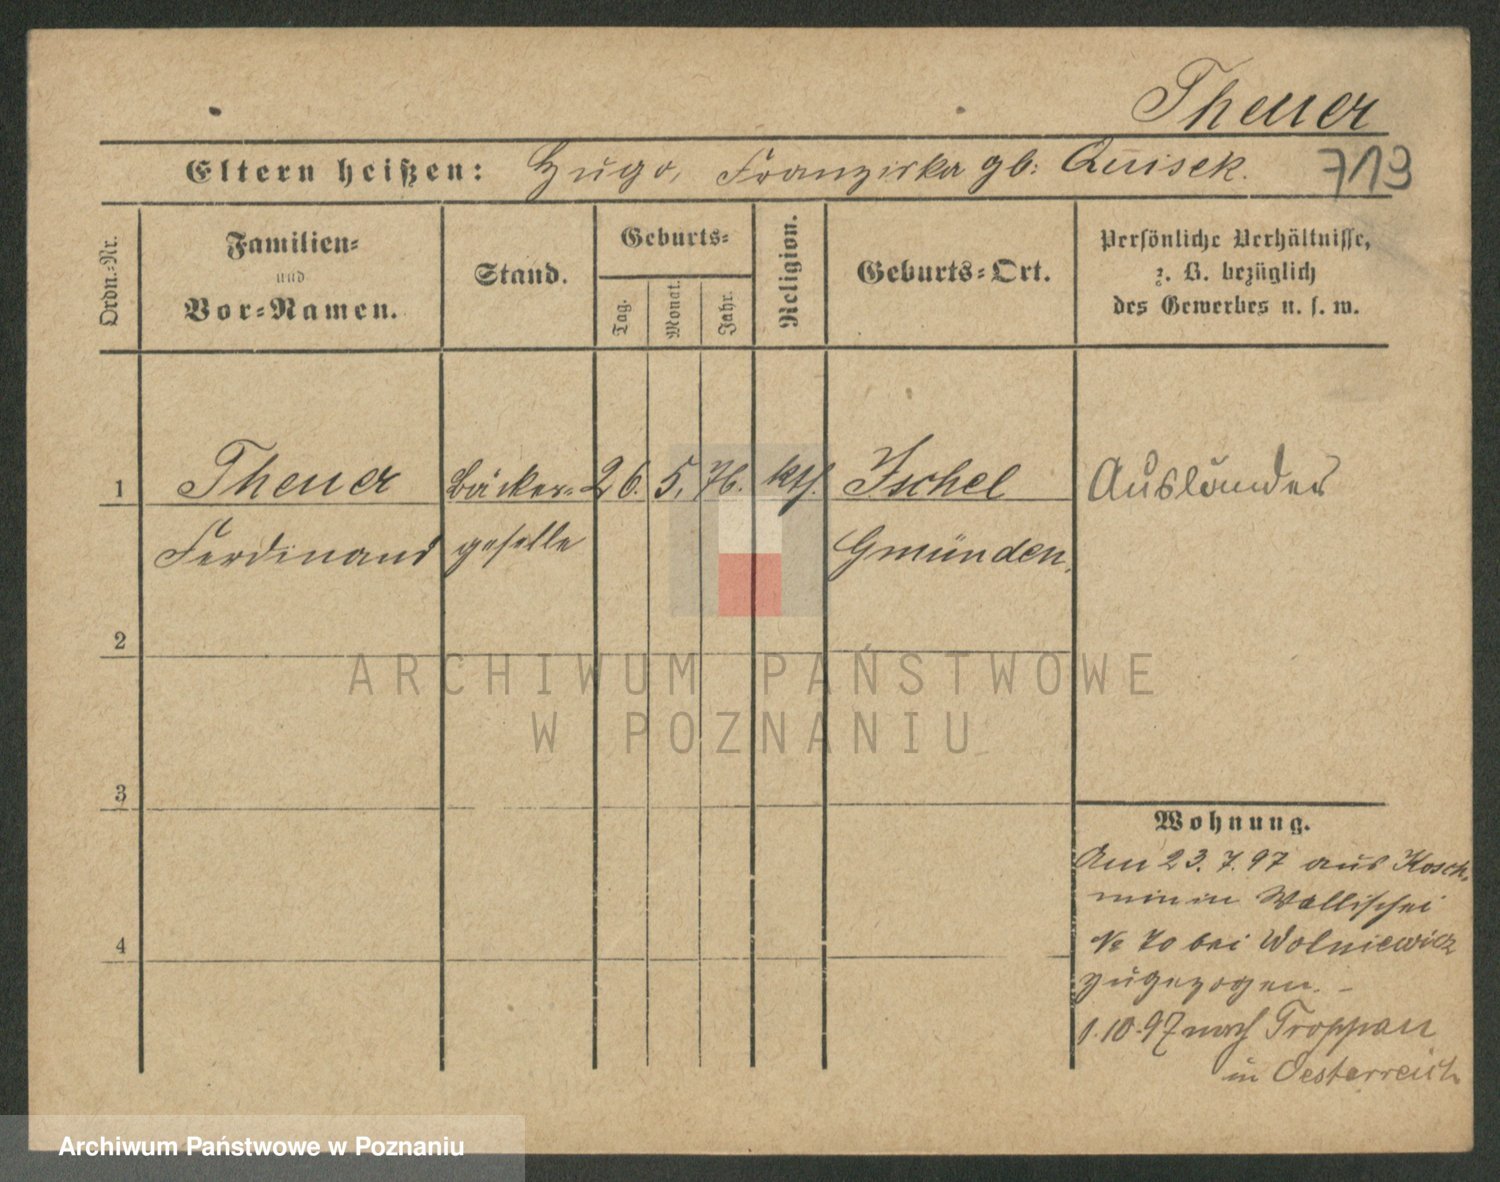 Theuer
Eltern heißen: Hugo, Franziska gb: Quisek.
713
Ordn.-Nr.
Familien-
und
Vor-Namen.
Stand.
Geburts-
Tag.
Monat.
Jahr.
Religion.
Geburts-Ort.
Persönliche Verhältnisse,
z. B. bezüglich
des Gewerbes u. s. w.
1 Theuer Bäcker- 26. 5. 76. kth. Ischel Ausländer
Ferdinand geselle Gmünden,
2
3
4
Wohnung.
Am 23.7.97 aus Kosch-
min in Wallischei
No 70 bei Wolniewicz
zugezogen. -
1.10.97 nach Troppau
in Oesterreich
ARCHIWUM PAŃSTWOWE
W POZNANIU
Archiwum Państwowe w Poznaniu